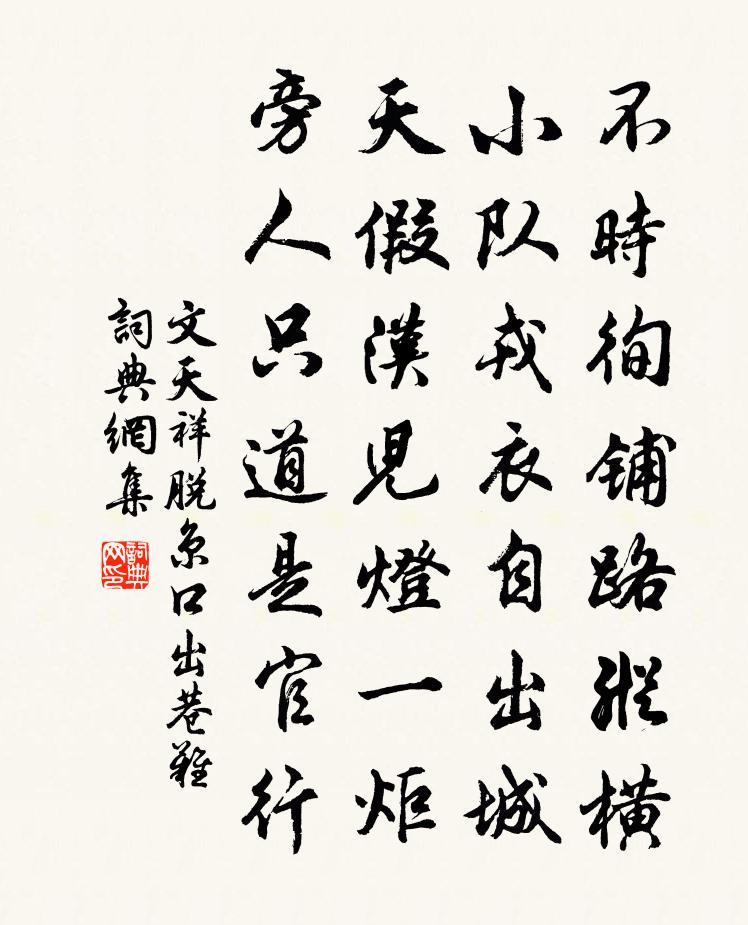 不時徇铺路縱橫
小队戎衣自出城
天假漢児燈一炬
旁人只道是官行
文天祥脱京口出巷難
詞典網集
詞典网印